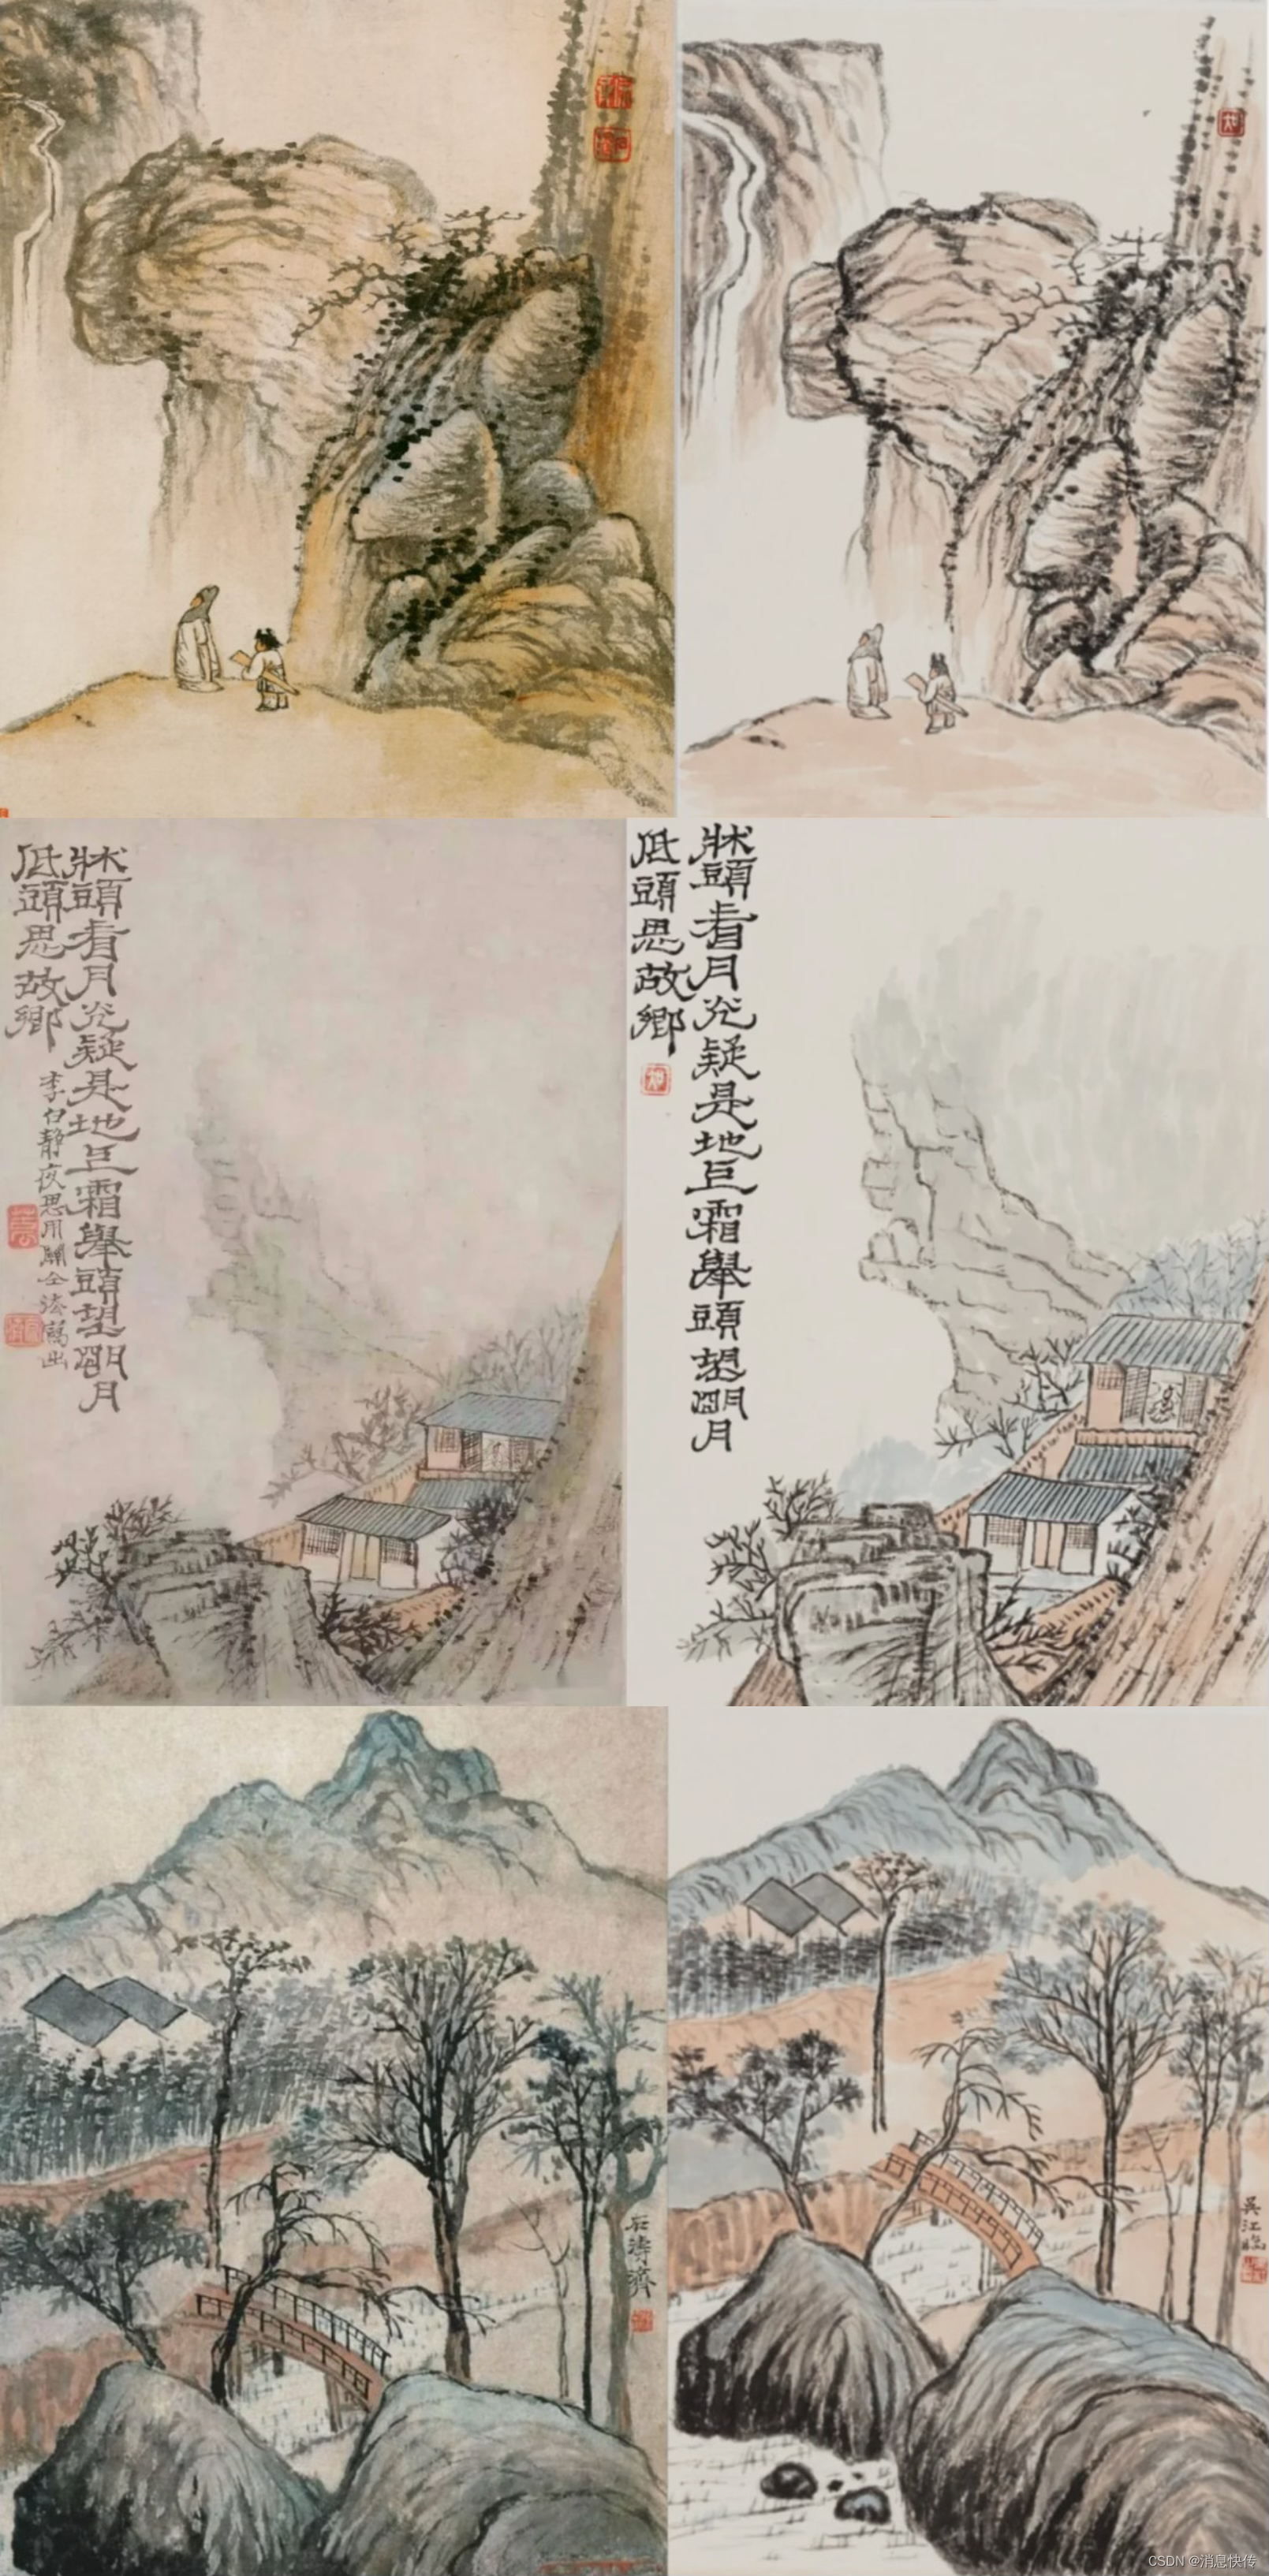 牀頭看月光疑是地上霜舉頭望朙月
低頭思故鄉
李白靜夜思用關仝法寫出
牀頭看月光疑是地上霜舉頭望朙月
低頭思故鄉
石濤濟
吳江臨
CSDN @消息快传